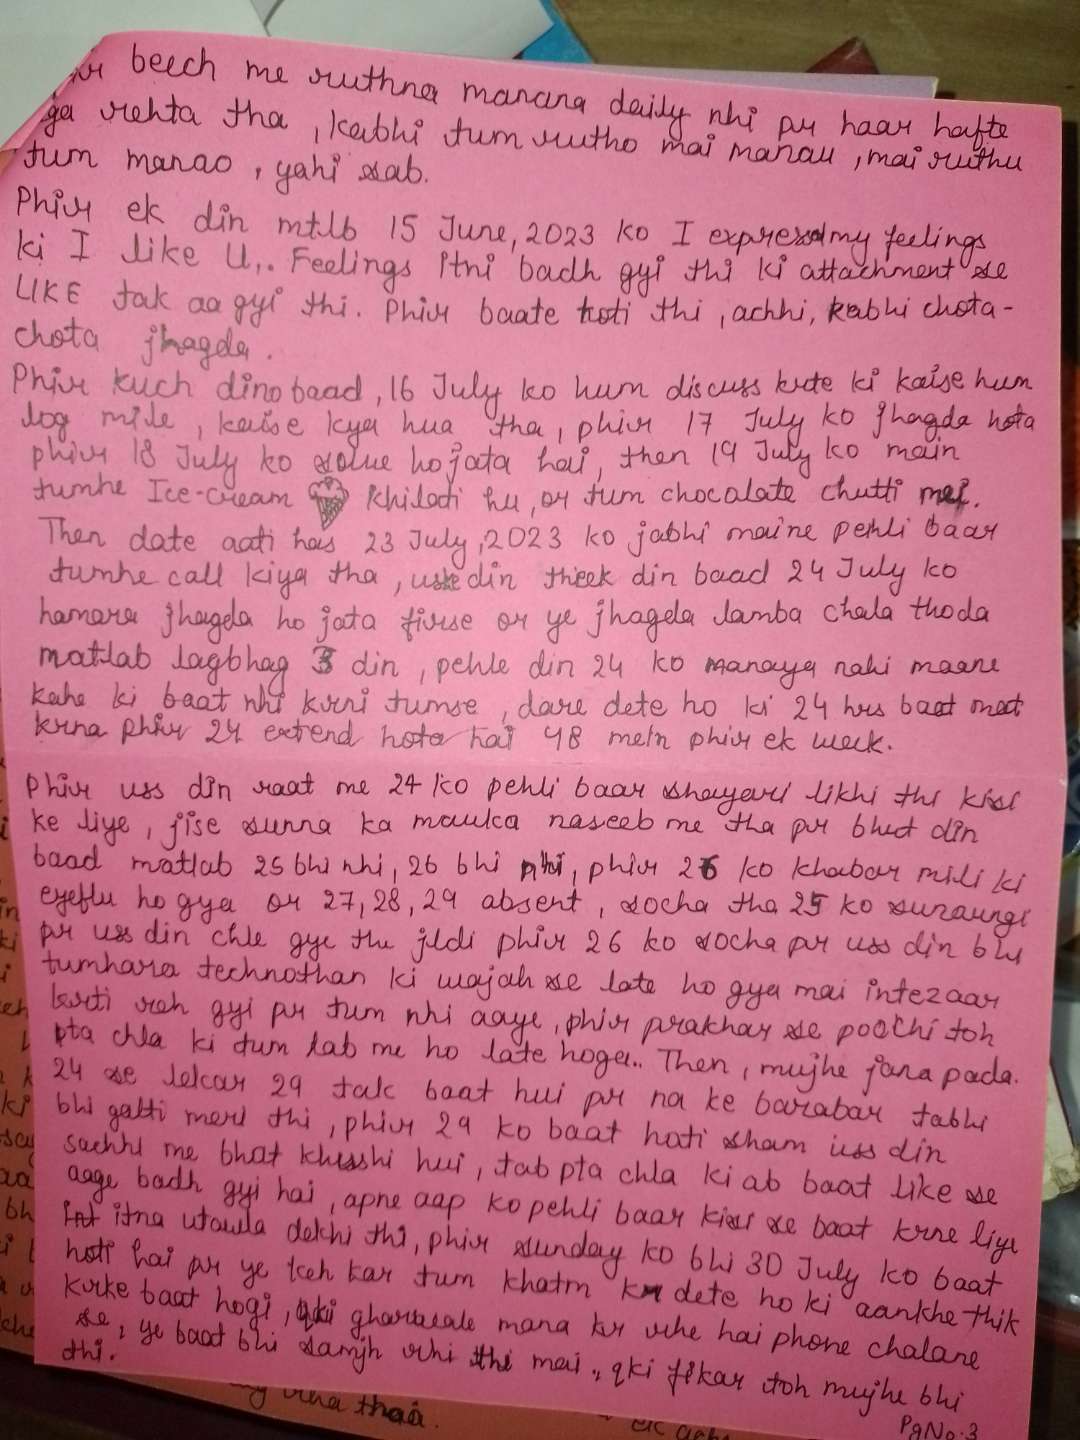 beech me ruthna manana daily nhi pr haar hafte
ga rehta tha, kabhi tum rutho mai manau, mai ruthu
tum manao, yahi sab.
Phir ek din mtlb 15 June, 2023 ko I express my feelings
ki I like U,. Feelings itni badh gyi thi ki attachment se
LIKE tak aa gyi thi. Phir baate hoti thi, achhi, kabhi chota-
chota jhagda.
Phir kuch dino baad, 16 July ko hum discuss krte ki kaise hum
log mile, kaise kya hua tha, phir 17 July ko jhagda hota
phir 18 July ko solve ho jata hai, then 19 July ko main
tumhe Ice-cream khilati hu, or tum chocolate chutti mei.
Then date aati hai 23 July, 2023 ko jabhi maine pehli baar
tumhe call kiya tha, uske din theek din baad 24 July ko
hamara jhagda ho jata firse or ye jhagda lamba chala thoda
matlab lagbhag 3 din, pehle din 24 ko manaya nahi maane
kahe ki baat nhi krni tumse, dare dete ho ki 24 hrs baat mat
krna phir 24 extend hota hai 48 mein phir ek week.
Phir uss din raat me 24 ko pehli baar shayari likhi thi kisi
ke liye, jise sunna ka mauka naseeb me tha pr bhut din
baad matlab 25 bhi nhi, 26 bhi nhi, phir 26 ko khabar mili ki
eyeflu ho gya or 27, 28, 29 absent, socha tha 25 ko sunaungi
pr uss din chle gye the jldi phir 26 ko socha pr uss din bhi
tumhara technothan ki wajah se late ho gya mai intezaar
krti reh gyi pr tum nhi aaye, phir prakhar se poochi toh
pta chla ki tum lab me ho late hoga.. Then, mujhe jana pada.
24 se lekar 29 tak baat hui pr na ke barabar tabhi
bhi galti meri thi, phir 29 ko baat hoti sham uss din
sachhi me bhat khusshi hui, tab pta chla ki ab baat like se
aage badh gyi hai, apne aap ko pehli baar kisi se baat krne liye
itna utawla dekhi thi, phir sunday ko bhi 30 July ko baat
hoti hai pr ye keh kar tum khatm kr dete ho ki aankhe thik
krke baat hogi, qki gharwale mana kr rhe hai phone chalane
se, ye baat bhi samjh rhi thi mai, qki fikar toh mujhe bhi
thi.
PgNo.3
rha thaa.
ek